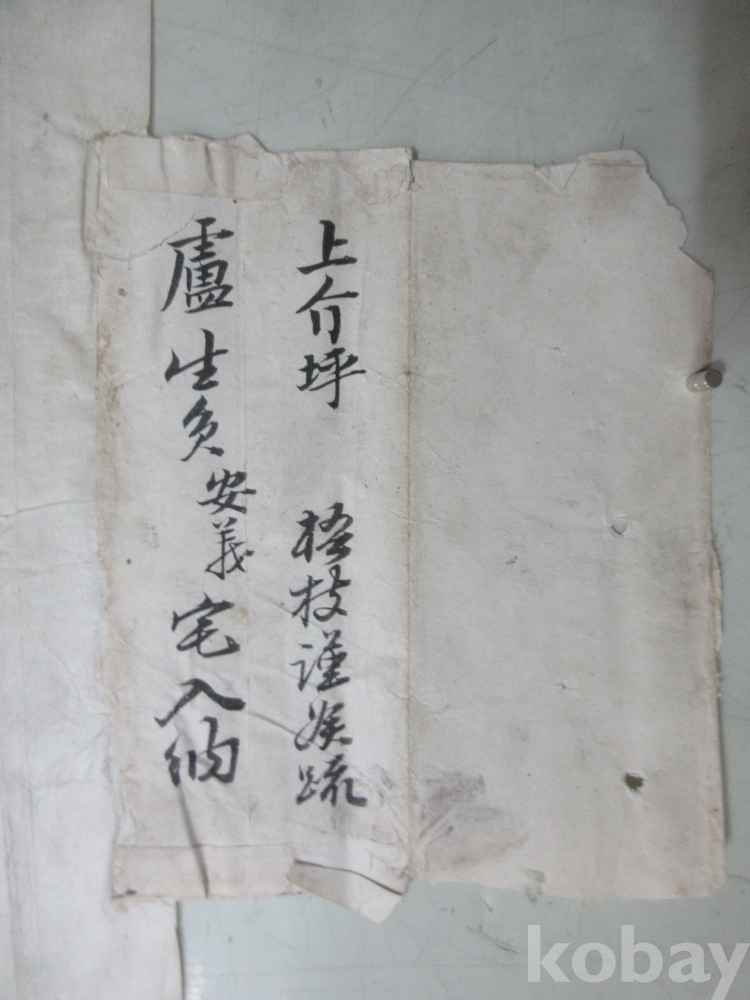 上介坪 梧枝謹候疏
盧生員安義宅入納
kobay